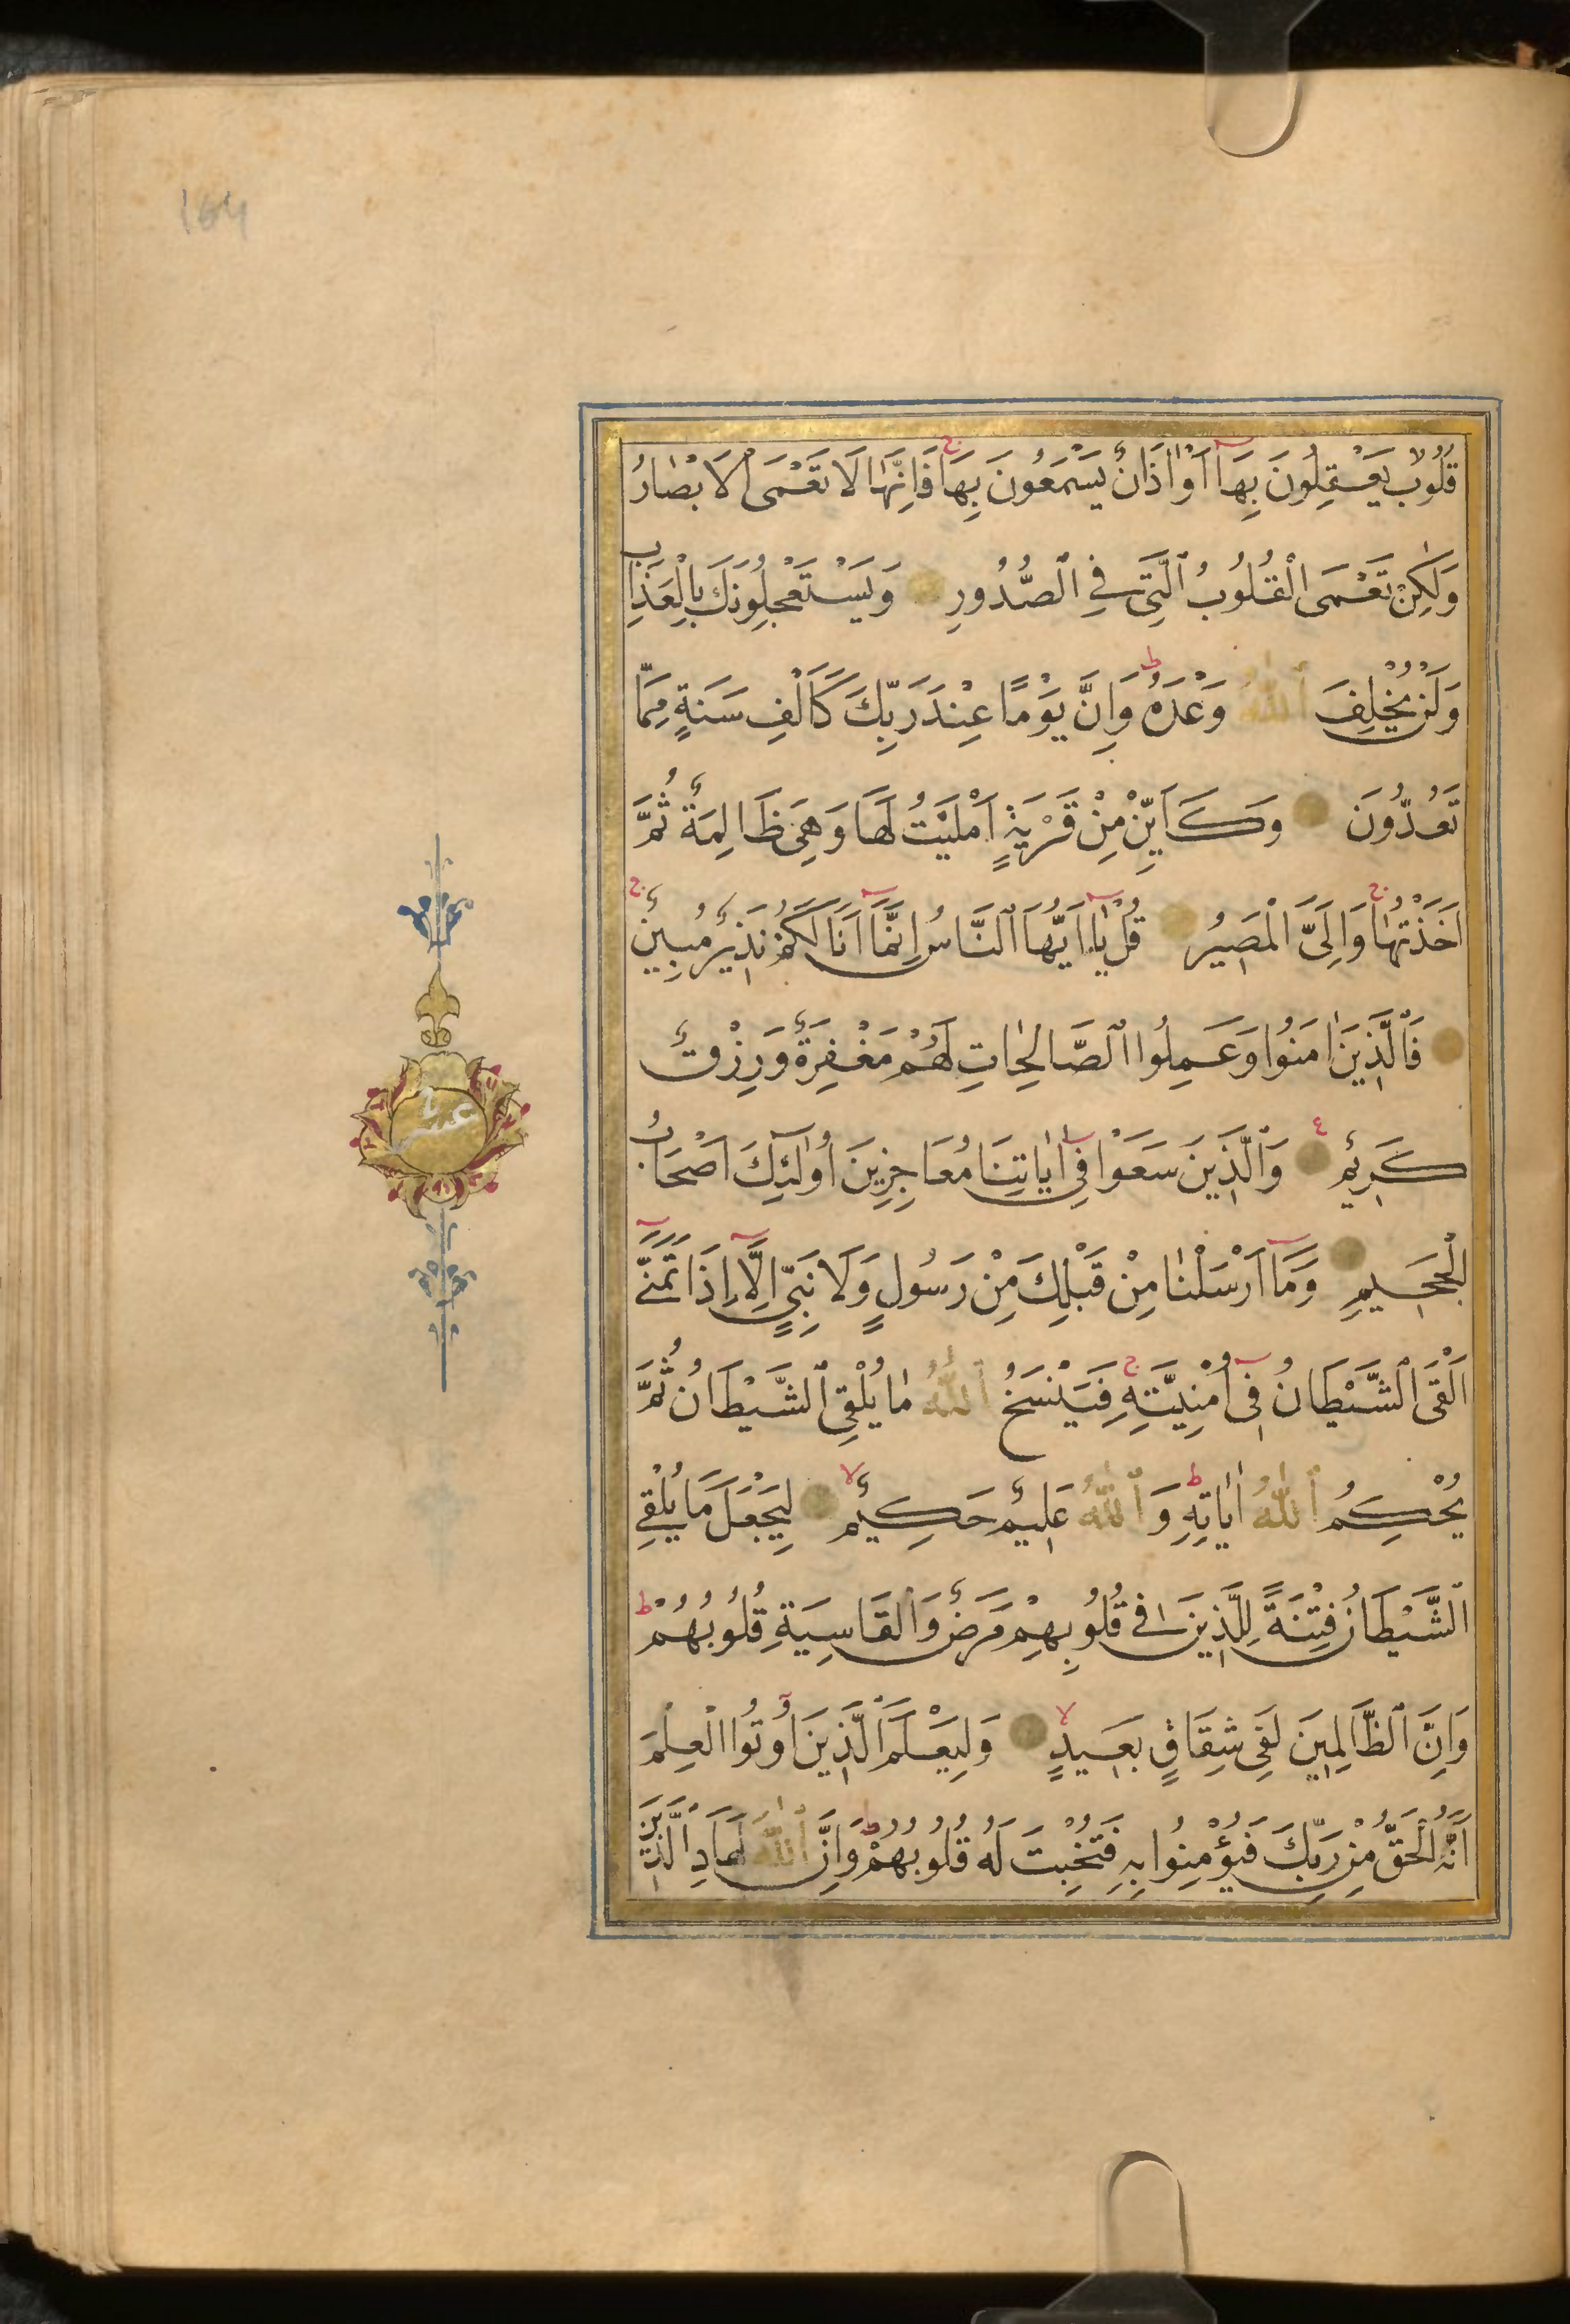 164
قُلُوبٌ يَعْقِلُونَ بِهَا اَوْ اٰذَانٌ يَسْمَعُونَ بِهَا فَاِنَّهَا لَا تَعْمَى الْاَبْصَارُ
وَلٰكِنْ تَعْمَى الْقُلُوبُ الَّتِي فِي الصُّدُورِ وَيَسْتَعْجِلُونَكَ بِالْعَذَابِ
وَلَنْ يُخْلِفَ اللّٰهُ وَعْدَهُ وَاِنَّ يَوْمًا عِنْدَ رَبِّكَ كَاَلْفِ سَنَةٍ مِمَّا
تَعُدُّونَ وَكَاَيِّنْ مِنْ قَرْيَةٍ اَمْلَيْتُ لَهَا وَهِيَ ظَالِمَةٌ ثُمَّ
اَخَذْتُهَا وَاِلَيَّ الْمَصِيرُ قُلْ يَا اَيُّهَا النَّاسُ اِنَّمَا اَنَا لَكُمْ نَذِيرٌ مُبِينٌ
فَالَّذِينَ اٰمَنُوا وَعَمِلُوا الصَّالِحَاتِ لَهُمْ مَغْفِرَةٌ وَرِزْقٌ
كَرِيمٌ وَالَّذِينَ سَعَوْا فِي اٰيَاتِنَا مُعَاجِزِينَ اُولٰئِكَ اَصْحَابُ
الْجَحِيمِ وَمَا اَرْسَلْنَا مِنْ قَبْلِكَ مِنْ رَسُولٍ وَلَا نَبِيٍّ اِلَّا اِذَا تَمَنّٰى
اَلْقَى الشَّيْطَانُ فِي اُمْنِيَّتِهِ فَيَنْسَخُ اللّٰهُ مَا يُلْقِي الشَّيْطَانُ ثُمَّ
يُحْكِمُ اللّٰهُ اٰيَاتِهِ وَاللّٰهُ عَلِيمٌ حَكِيمٌ لِيَجْعَلَ مَا يُلْقِي
الشَّيْطَانُ فِتْنَةً لِلَّذِينَ فِي قُلُوبِهِمْ مَرَضٌ وَالْقَاسِيَةِ قُلُوبُهُمْ
وَاِنَّ الظَّالِمِينَ لَفِي شِقَاقٍ بَعِيدٍ وَلِيَعْلَمَ الَّذِينَ اُوتُوا الْعِلْمَ
اَنَّهُ الْحَقُّ مِنْ رَبِّكَ فَيُؤْمِنُوا بِهِ فَتُخْبِتَ لَهُ قُلُوبُهُمْ وَاِنَّ اللّٰهَ لَهَادِ الَّذِينَ
عشر